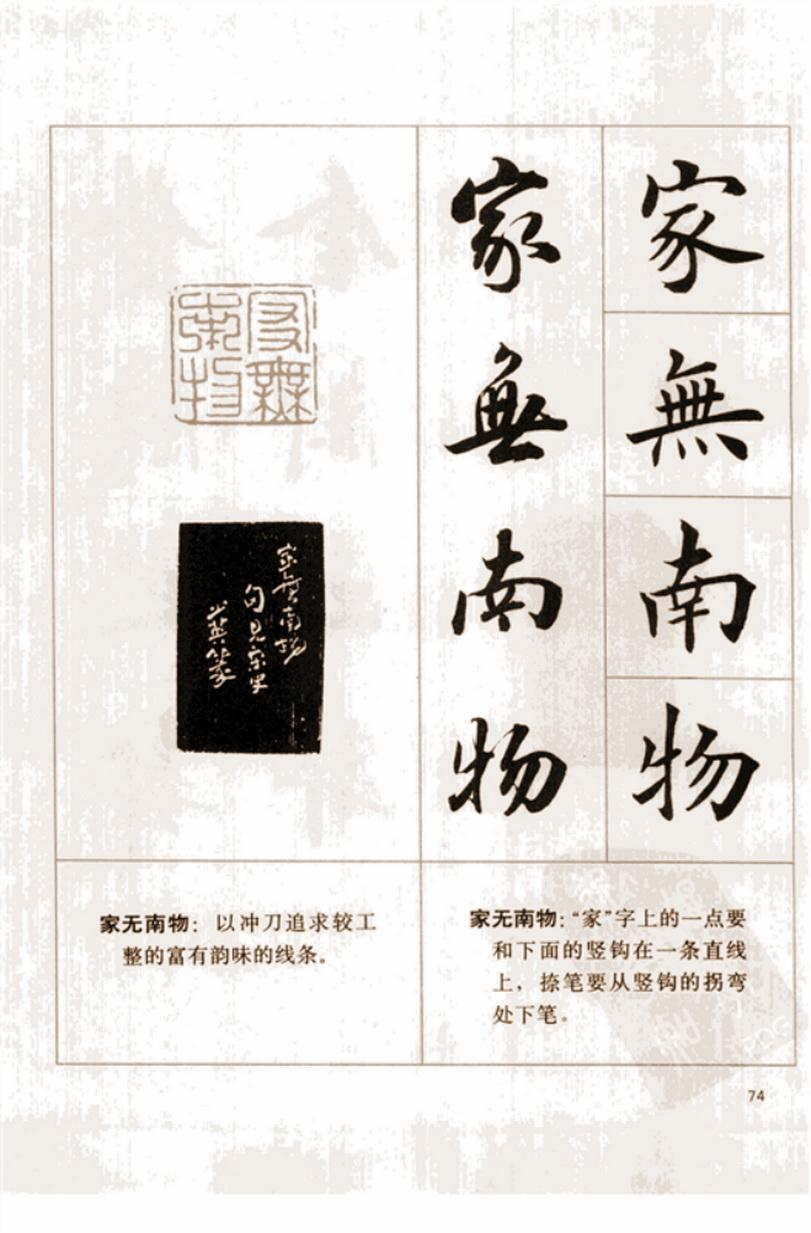 家
無
南
物
家
無
南
物
家無南物
句見宋史
家無南物
家无南物：以冲刀追求较工
整的富有韵味的线条。
家无南物：“家”字上的一点要
和下面的竖钩在一条直线
上，捺笔要从竖钩的拐弯
处下笔。
74